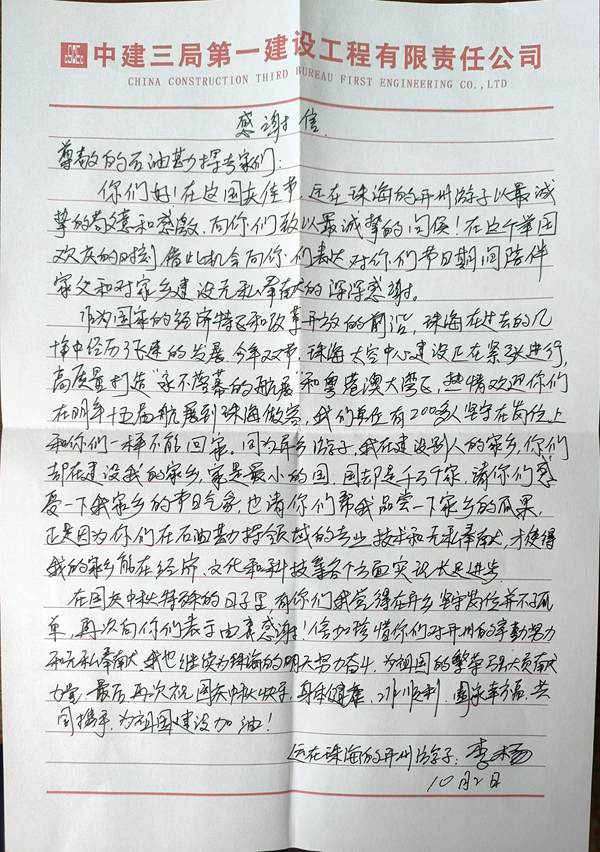 中建三局第一建设工程有限责任公司
CHINA CONSTRUCTION THIRD BUREAU FIRST ENGINEERING CO.,LTD
感谢信
尊敬的石油勘探专家们:
你们好!在这国庆佳节 远在珠海的开州游子以最诚
挚的敬意和感激,向你们致以最诚挚的问候!在这个举国
欢庆的时刻 借此机会向你们表达对你们节日期间陪伴
家父和对家乡建设无私奉献的深深感谢。
作为国家的经济特区和改革开放的前沿,珠海在过去的几
十年中经历了快速的发展,今年双节,珠海太空中心建设正在紧张进行,
高质量打造"永不落幕的航展"和粤港澳大湾区,热情欢迎你们
在明年十五届航展到珠海做客,我们单位有2000多人坚守在岗位上
和你们一样不能回家。同为异乡游子,我在建设别人的家乡,你们
却在建设我的家乡,家是最小的国,国却是千万个家,请你们感
受一下我家乡的节日气象,也请你们帮我品尝一下家乡的瓜果,
正是因为你们在石油勘探领域的专业技术和无私奉献,才使得
我的家乡能在经济、文化和科技等各个方面实现长足进步
在国庆中秋特殊的日子里,有你们我觉得在异乡坚守岗位并不孤
单,再次向你们表于由衷感谢!倍加珍惜你们对开州的辛勤努力
和无私奉献,我也继续为珠海的明天努力奋斗,为祖国的繁荣强大贡献
力量,最后,再次祝 国庆中秋快乐,身体健康,工作顺利,阖家幸福,共
同携手,为祖国建设加油!
远在珠海的开州游子:李杨
10月2日